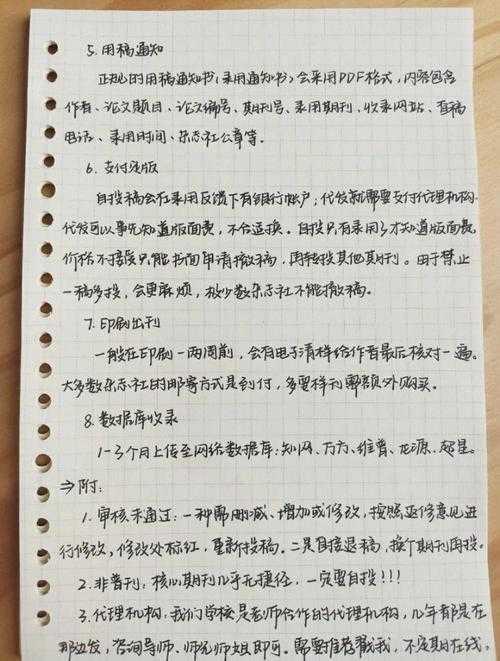 5. 用稿通知
正规的用稿通知书(录用通知书)会采用PDF格式,内容包含
作者、论文题目、论文编号、期刊号、录用期刊、收录网站、查稿
电话、录用时间、杂志社公章等。
6. 支付定版
自投稿会在录用反馈下有银行帐户;代发就需要支付代理机构.
代发可以事先知道版面费,不合适换。自投只有录用了才知道版面费,
价格不接受只能书面申请撤稿,再转投其他期刊。由于禁止
一稿多投,会更麻烦,极少数杂志社不能撤稿。
7. 印刷出刊
一般在印刷一两周前,会有电子清样给作者最后核对一遍。
大多数杂志社的邮寄方式是到付,多要样刊需额外购买。
8. 数据库收录
1-3个月上传至网络数据库:知网、万方、维普、龙源、超星。
⇒附:
1. 审核未通过:一种需删减、增加或修改,按照返修意见进
行修改,修改处标红,重新投稿。二是直接退稿,换个期刊再投。
2. 非普刊:核心期刊几乎无捷径,一定要自投!!!
3. 代理机构:我们学校是老师合作的代理机构,几年都是在
那边发,咨询导师、师兄师姐即可。需要推荐戳我,不定期在线。